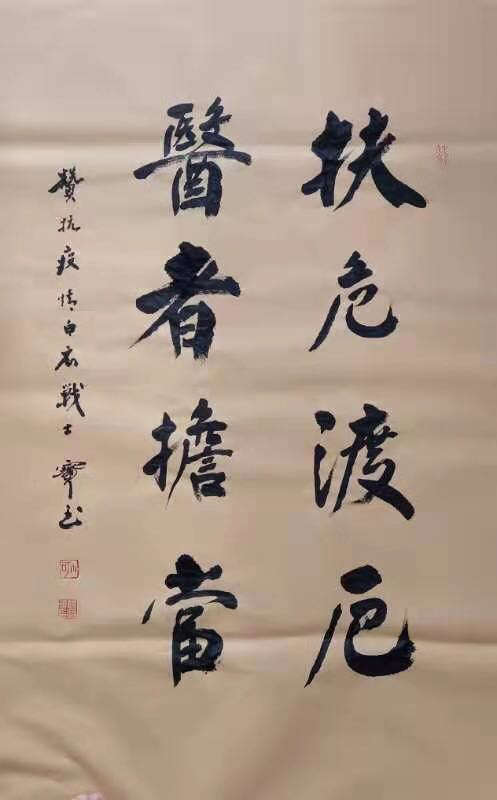 扶危渡厄
醫者擔當
贊抗疫情白衣戰士